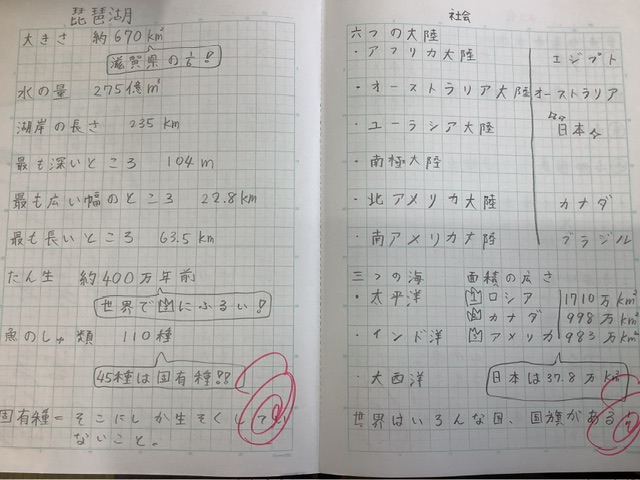 琵琶湖
大きさ 約670km²
滋賀県の1/6!
水の量 275億m³
湖岸の長さ 235km
最も深いところ 104m
最も広い幅のところ 22.8km
最も長いところ 63.5km
たん生 約400万年前
世界で にふるい!!
魚のしゅ類 110種
45種は固有種!!
固有種=そこにしか生そくして
ないこと。
社会
六つの大陸
・アフリカ大陸 エジプト
・オーストラリア大陸 オーストラリア
・ユーラシア大陸 日本
・南極大陸
・北アメリカ大陸 カナダ
・南アメリカ大陸 ブラジル
三つの海 面積の広さ
・太平洋 1 ロシア 1710万km²
2 カナダ 998万km²
・インド洋 3 アメリカ 983万km²
・大西洋 日本は37.8万km²
世界はいろんな国、国旗がある